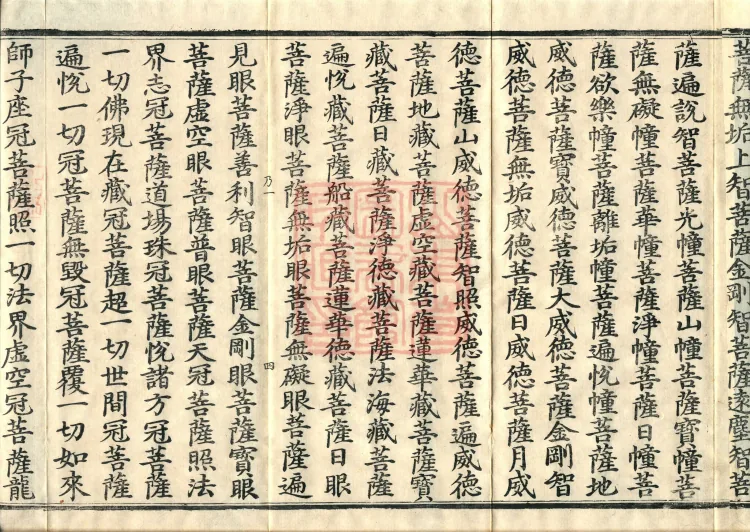 菩薩無垢上智菩薩金剛智菩薩遠塵智菩
薩遍說智菩薩光幢菩薩山幢菩薩寶幢菩
薩無礙幢菩薩華幢菩薩淨幢菩薩日幢菩
薩欲樂幢菩薩離垢幢菩薩遍悅幢菩薩地
威德菩薩寶威德菩薩大威德菩薩金剛智
威德菩薩無垢威德菩薩日威德菩薩月威
德菩薩山威德菩薩智照威德菩薩遍威德
菩薩地藏菩薩虛空藏菩薩蓮華藏菩薩寶
藏菩薩日藏菩薩淨德藏菩薩法海藏菩薩
遍悅藏菩薩船藏菩薩蓮華德藏菩薩日眼
菩薩淨眼菩薩無垢眼菩薩無礙眼菩薩遍
乃一 四
見眼菩薩善利智眼菩薩金剛眼菩薩寶眼
菩薩虛空眼菩薩普眼菩薩天冠菩薩照法
界志冠菩薩道場珠冠菩薩悅諸方冠菩薩
一切佛現在藏冠菩薩超一切世間冠菩薩
遍悅一切冠菩薩無毀冠菩薩覆一切如來
師子座冠菩薩照一切法界虛空冠菩薩龍